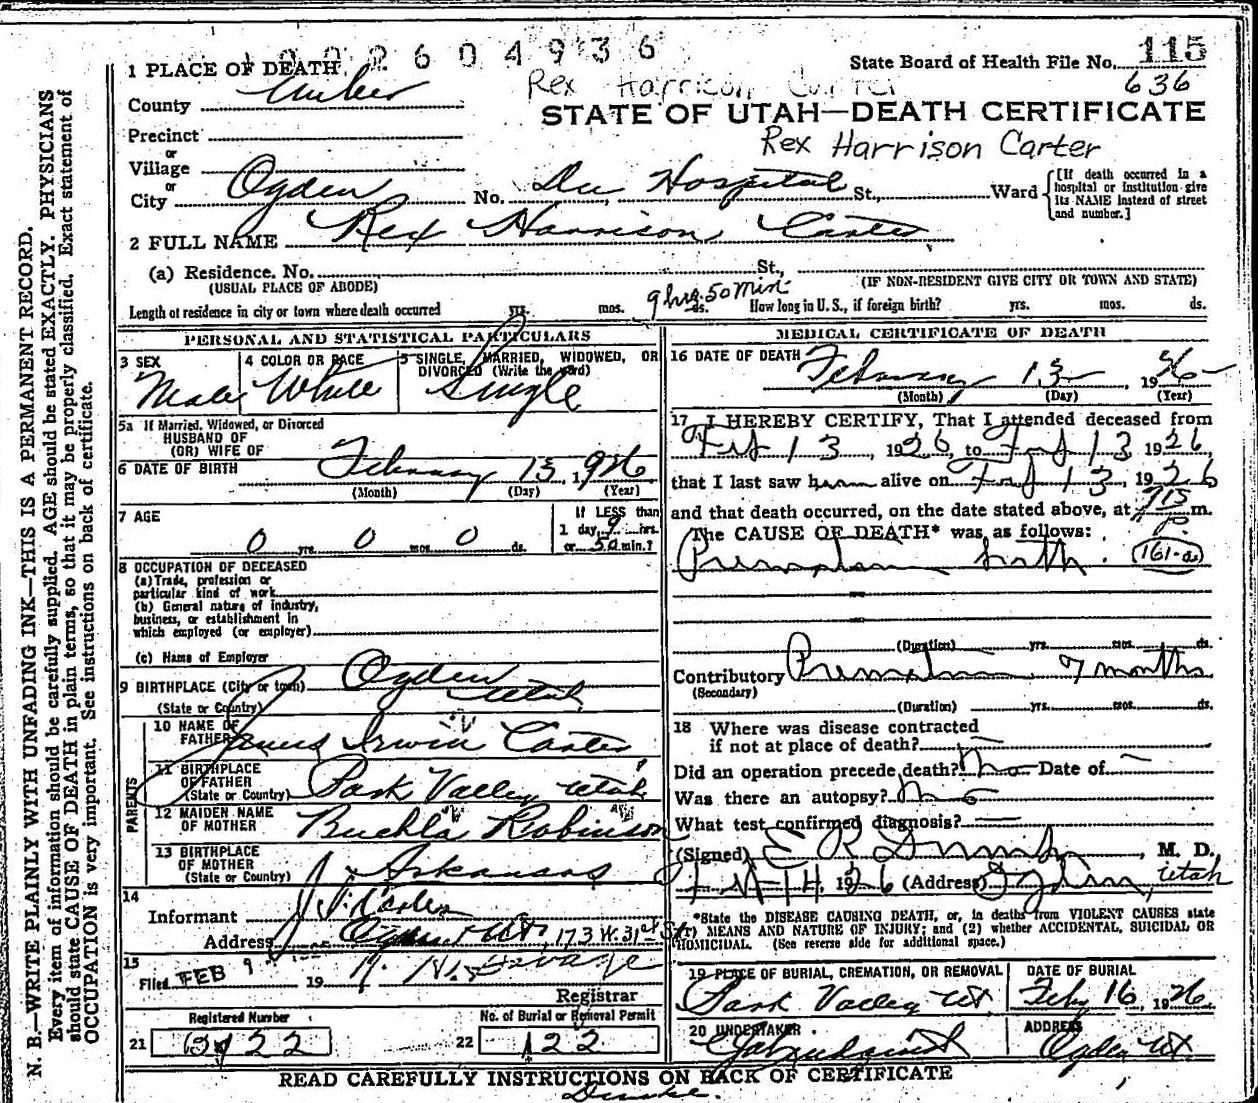 2604936
1 PLACE OF DEATH
State Board of Health File No. 115
636
Rex Harrison Carter
County Weber
STATE OF UTAH—DEATH CERTIFICATE
Rex Harrison Carter
Precinct
or
Village
or
City Ogden No. Dee Hospital St., Ward
[If death occurred in a
hospital or institution give
its NAME instead of street
and number.]
2 FULL NAME Rex Harrison Carter
(a) Residence. No. St.,
(USUAL PLACE OF ABODE) (IF NON-RESIDENT GIVE CITY OR TOWN AND STATE)
Length of residence in city or town where death occurred yrs. mos. 9 hrs. 50 Min. ds. How long in U.S., if foreign birth? yrs. mos. ds.
PERSONAL AND STATISTICAL PARTICULARS
3 SEX 4 COLOR OR RACE 5 SINGLE, MARRIED, WIDOWED, OR
DIVORCED (Write the word)
Male White Single
5a If Married, Widowed, or Divorced
HUSBAND OF
(OR) WIFE OF
6 DATE OF BIRTH February 13 1926
(Month) (Day) (Year)
7 AGE If LESS than
1 day, 9 hrs.
0 yrs. 0 mos. 0 ds. or 50 min.?
8 OCCUPATION OF DECEASED
(a) Trade, profession or
particular kind of work
(b) General nature of industry,
business, or establishment in
which employed (or employer)
(c) Name of Employer
9 BIRTHPLACE (City or town) Ogden
(State or Country) Utah
PARENTS
10 NAME OF
FATHER James Irwin Carter
11 BIRTHPLACE
OF FATHER
(State or Country) Park Valley Utah
12 MAIDEN NAME
OF MOTHER Buehla Robinson
13 BIRTHPLACE
OF MOTHER
(State or Country) Arkansas
14
Informant J. I. Carter
Address Ogden Ut, 173 W. 31st St
15
Filed FEB 19
Registrar
Registered Number No. of Burial or Removal Permit
21 22 122
MEDICAL CERTIFICATE OF DEATH
16 DATE OF DEATH February 13, 1926
(Month) (Day) (Year)
17 I HEREBY CERTIFY, That I attended deceased from
Feb 13, 1926, to Feb 13 1926,
that I last saw him alive on Feb 13, 1926
and that death occurred, on the date stated above, at 715 P. m.
The CAUSE OF DEATH* was as follows:
Premature birth. 161-a
(Duration) yrs. mos. ds.
Contributory Premature 7 months
(Secondary)
(Duration) yrs. mos. ds.
18 Where was disease contracted
if not at place of death?
Did an operation precede death? No Date of
Was there an autopsy? No
What test confirmed diagnosis?
(Signed) E R Dumke, M. D.
Feb 14, 1926 (Address) Ogden, Utah
*State the DISEASE CAUSING DEATH, or, in deaths from VIOLENT CAUSES state
(1) MEANS AND NATURE OF INJURY; and (2) whether ACCIDENTAL, SUICIDAL OR
HOMICIDAL. (See reverse side for additional space.)
19 PLACE OF BURIAL, CREMATION, OR REMOVAL DATE OF BURIAL
Park Valley Ut Feb 16 1926
20 UNDERTAKER ADDRESS
Ogden Ut.
READ CAREFULLY INSTRUCTIONS ON BACK OF CERTIFICATE
Dumke.
N. B.—WRITE PLAINLY WITH UNFADING INK—THIS IS A PERMANENT RECORD.
Every item of information should be carefully supplied. AGE should be stated EXACTLY. PHYSICIANS
should state CAUSE OF DEATH in plain terms, so that it may be properly classified. Exact statement of
OCCUPATION is very important. See instructions on back of certificate.